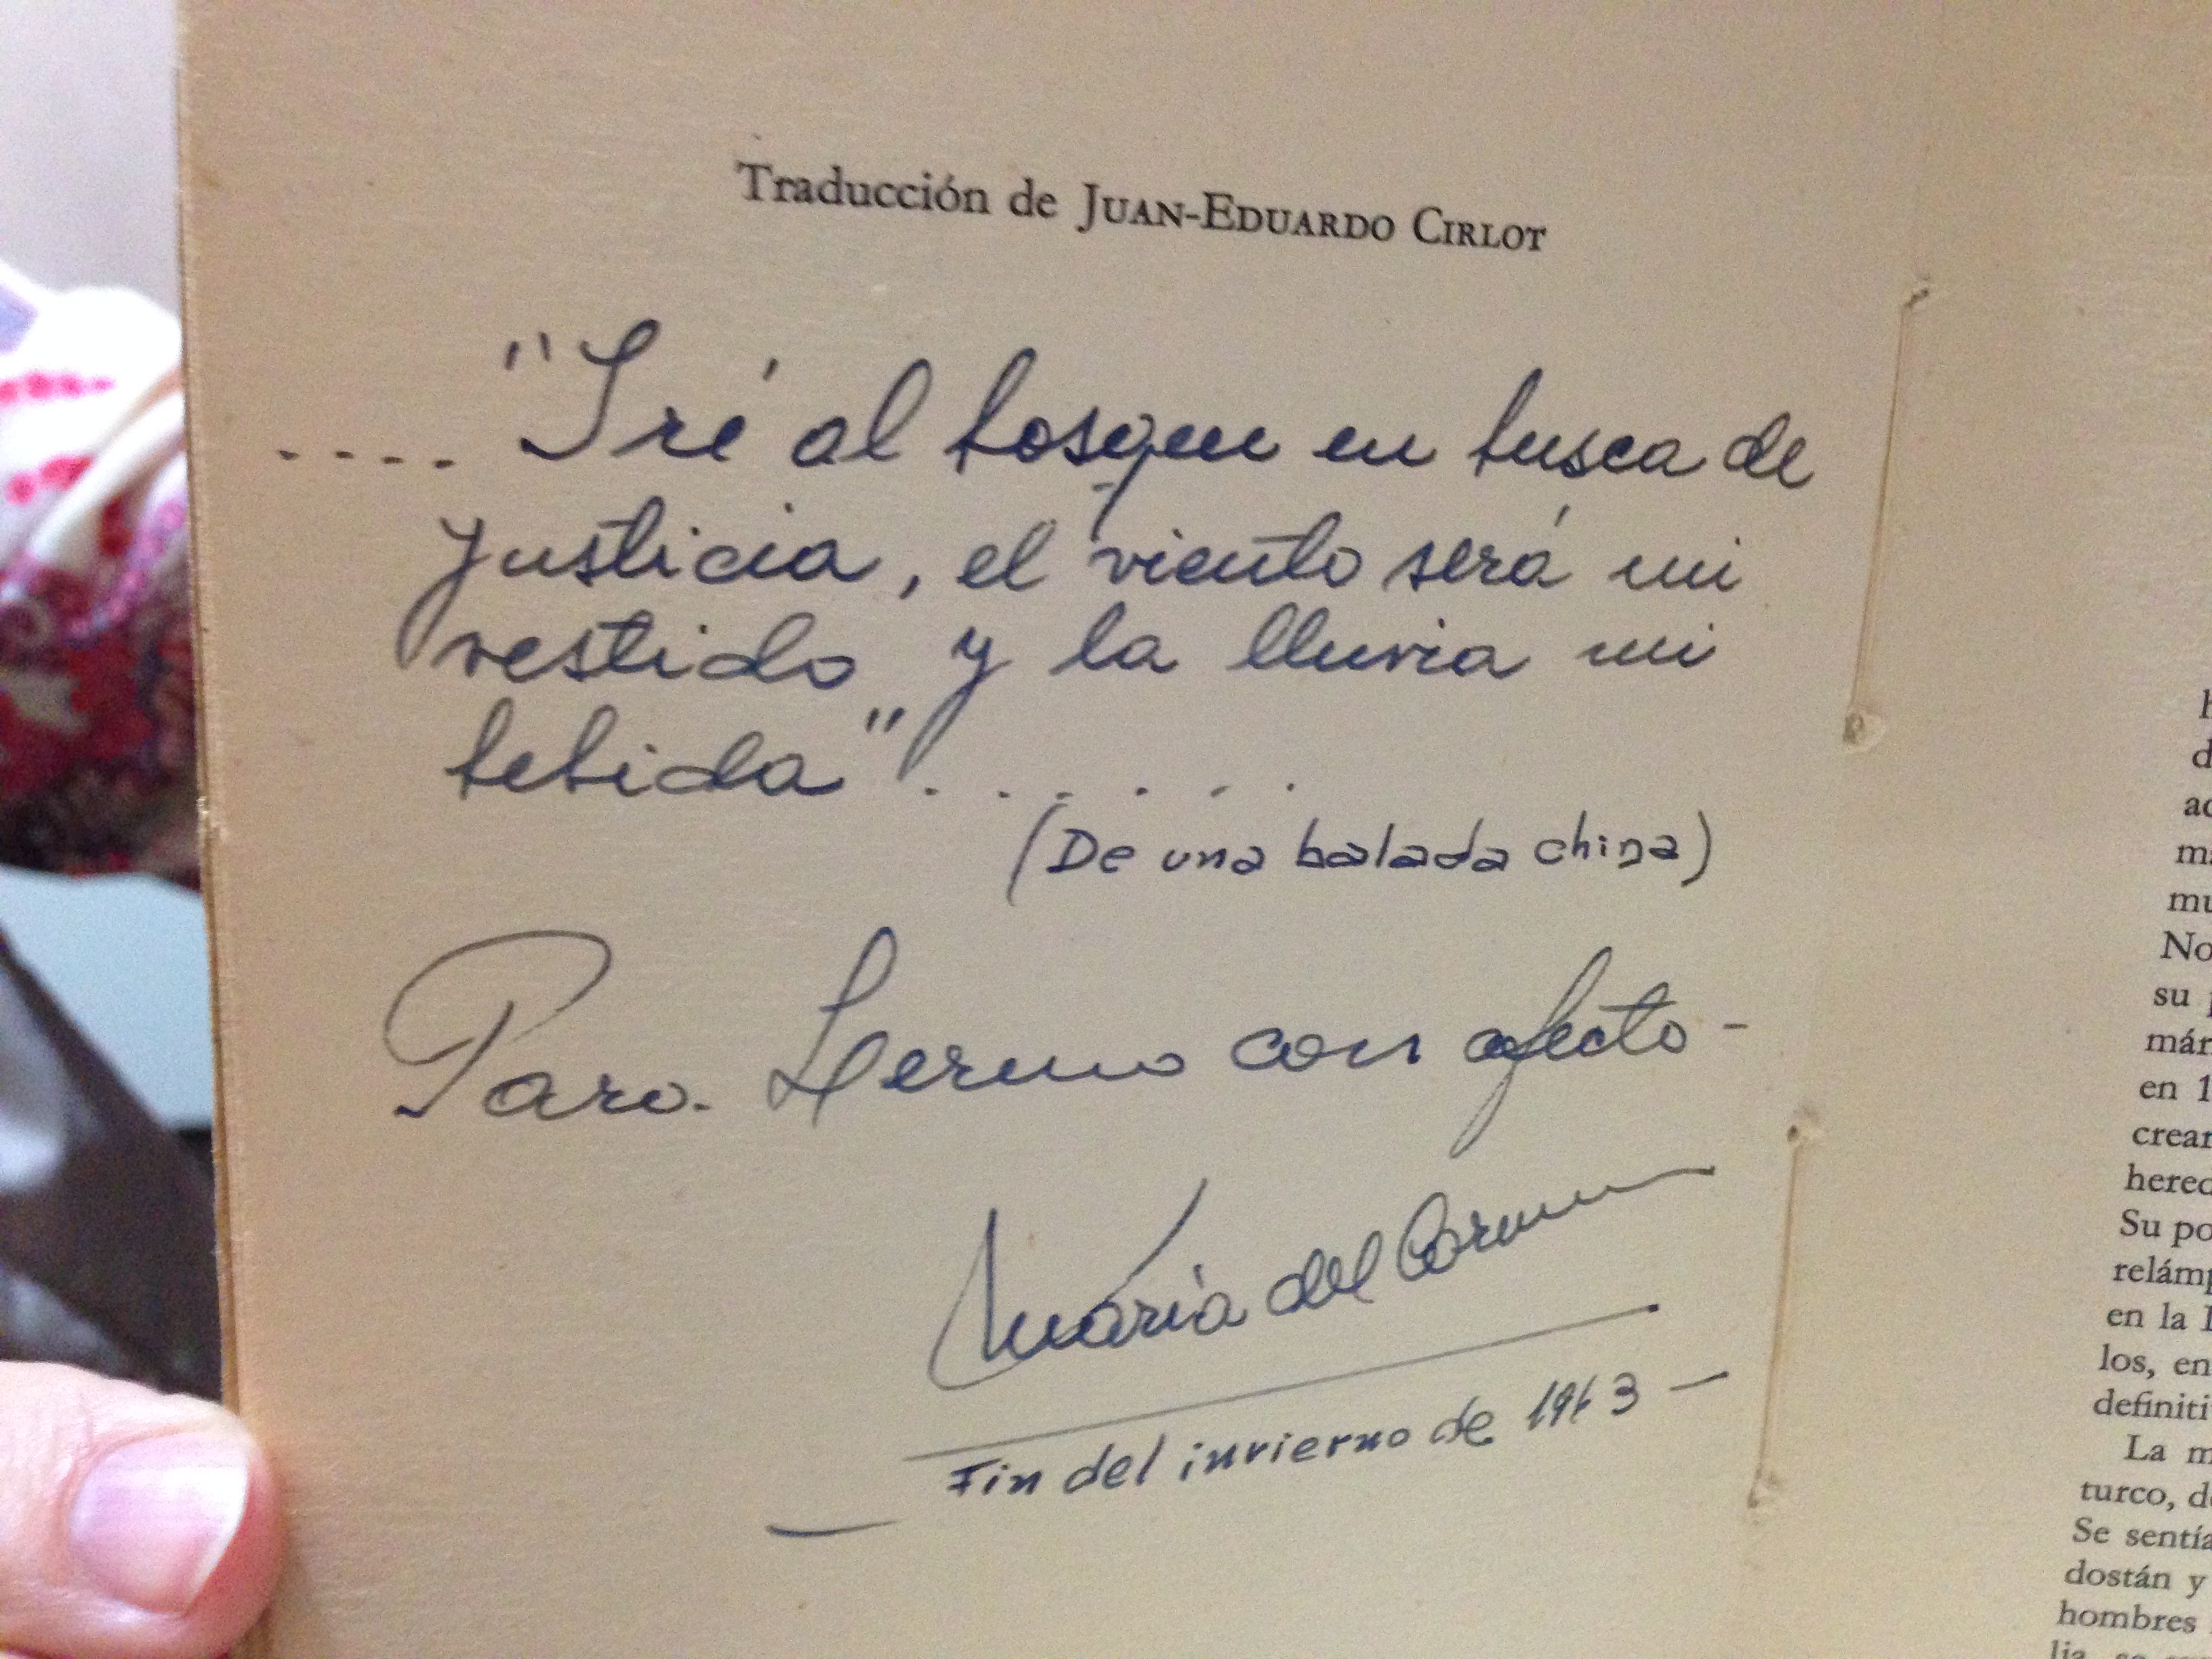 Traducción de JUAN-EDUARDO CIRLOT
.... "Iré al bosque en busca de
justicia, el viento será mi
vestido y la lluvia mi
bebida" ......
(De una balada china)
Para Lermo con afecto -
María del Carmen
Fin del invierno de 1963 -
No
su
en 1
crear
Su po
en la
los, en
definiti
La m
turco, d
Se sentía
dostán y
hombres